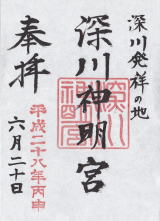 深川発祥の地
深川神明宮
奉拝
平成二十八年丙申
六月二十日